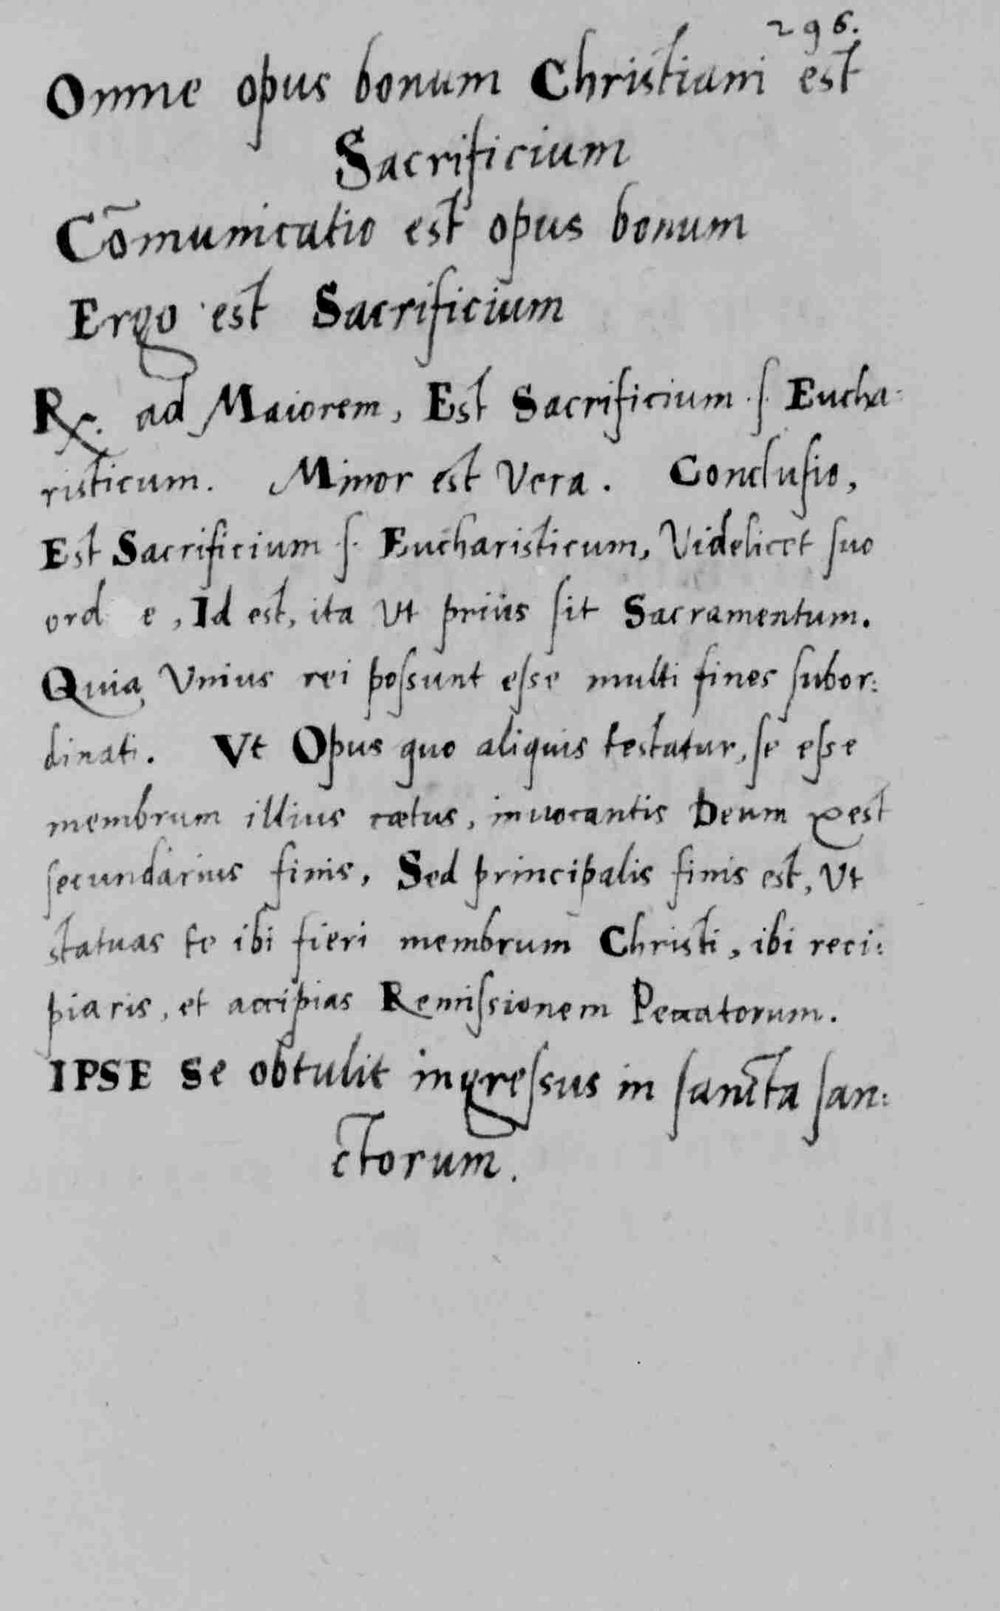 296.
Omne opus bonum Christiani est
Sacrificium
Cōmunicatio est opus bonum
Ergo est Sacrificium
R. ad Maiorem, Est Sacrificium .ſ. Eucha:
risticum. Minor est Vera. Conclusio,
Est Sacrificium .ſ. Eucharisticum, Videlicet suo
ord e, Id est, ita Ut prius sit Sacramentum.
Quia Unius rei possunt esse multi fines subor:
dinati. Vt Opus quo aliquis testatur, se esse
membrum illius cœtus, invocantis Deum est
secundarius finis, Sed principalis finis est, Ut
statuas te ibi fieri membrum Christi, ibi reci:
piaris, et accipias Remissionem Peccatorum.
IPSE Se obtulit ingressus in sancta san:
ctorum.